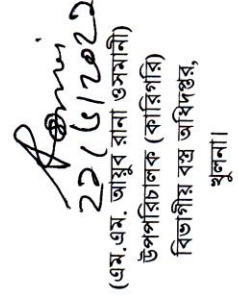 ২১/৬/২০২১
(এম.এম. আয়ুব রানা ওসমানী)
উপপরিচালক (কারিগরি)
বিভাগীয় বস্ত্র অধিদপ্তর,
খুলনা।